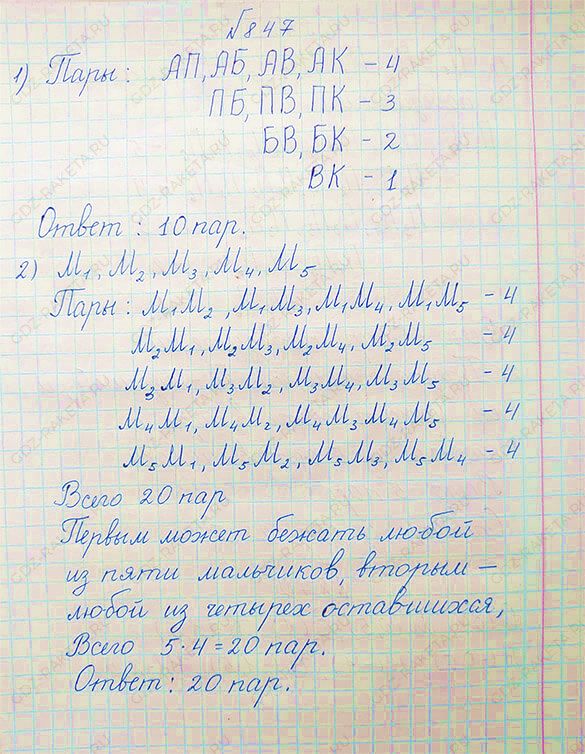 №847
1) Пары: АП, АБ, АВ, АК – 4
ПБ, ПВ, ПК – 3
БВ, БК – 2
ВК – 1
Ответ: 10 пар.
2) М₁, М₂, М₃, М₄, М₅
Пары: М₁М₂, М₁М₃, М₁М₄, М₁М₅ – 4
М₂М₁, М₂М₃, М₂М₄, М₂М₅ – 4
М₃М₁, М₃М₂, М₃М₄, М₃М₅ – 4
М₄М₁, М₄М₂, М₄М₃ М₄М₅ – 4
М₅М₁, М₅М₂, М₅М₃, М₅М₄ – 4
Всего 20 пар
Первым может бежать любой
из пяти мальчиков, вторым –
любой из четырех оставшихся,
Всего 5·4=20 пар.
Ответ: 20 пар.
GDZ-RAKETA.RU